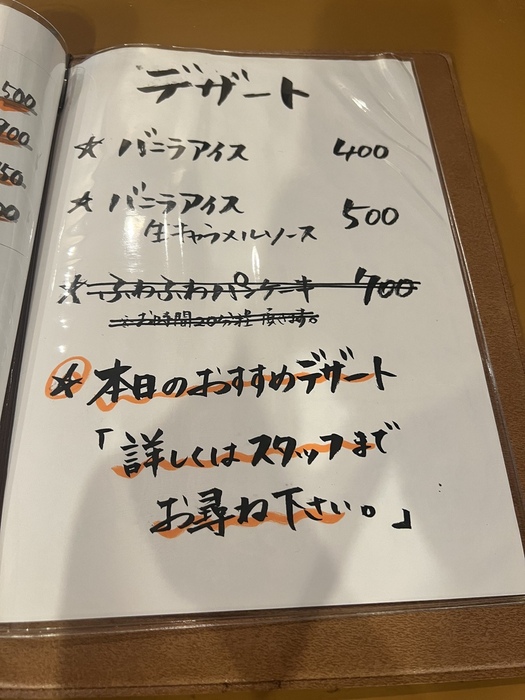 デザート
☆ バニラアイス 400
☆ バニラアイス 500
生キャラメルソース
☆ ふわふわパンケーキ 700
※お時間20分程頂きます。
☆ 本日のおすすめデザート
「詳しくはスタッフまで
お尋ね下さい。」
500